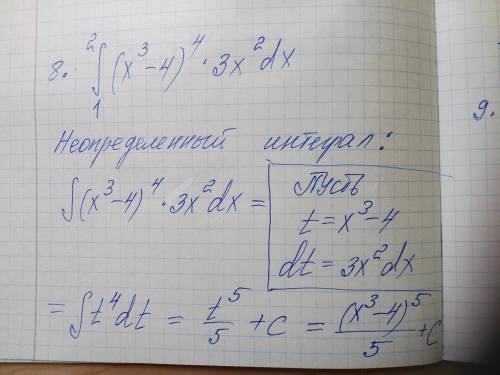 8. ∫₁² (x³-4)⁴ · 3x² dx
9.
Неопределенный интеграл:
∫(x³-4)⁴ · 3x² dx =
Пусть
t = x³-4
dt = 3x² dx
= ∫t⁴dt = t⁵/5 + C = (x³-4)⁵/5 + C